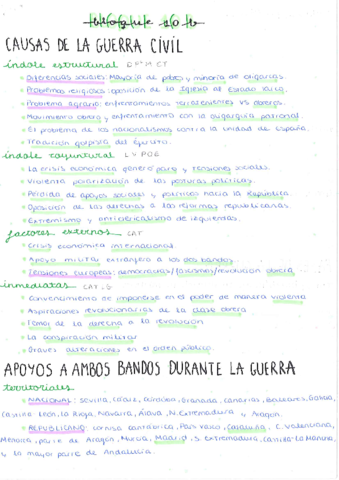 bloque 10 b
CAUSAS DE LA GUERRA CIVIL
índole estructural
Diferencias sociales: Mayoría de pobres y minoría de oligarcas.
Problemas religiosos: oposición de la Iglesia al Estado laico.
Problema agrario: enfrentamientos terratenientes vs obreros.
Movimiento obrero y enfrentamiento con la oligarquía patronal.
El problema de los nacionalismos contra la unidad de España.
Tradición golpista del Ejército.
índole coyuntural
La crisis económica generó paro y tensiones sociales.
Violenta polarización de las posturas políticas.
Pérdida de apoyos sociales y políticos hacia la República.
Oposición de las derechas a las reformas republicanas.
Extremismo y anticlericalismo de izquierdas.
factores externos CAT
Crisis económica internacional.
Apoyo militar extranjero a los dos bandos.
Tensiones europeas: democracias/fascismos/revolución obrera
inmediatas
Convencimiento de imponerse en el poder de manera violenta
Aspiraciones revolucionarias de la clase obrera
Temor de la derecha a la revolución
La conspiración militar
Graves alteraciones en el orden público.
APOYOS A AMBOS BANDOS DURANTE LA GUERRA
territoriales
NACIONAL: Sevilla, Cádiz, Córdoba, Granada, Canarias, Baleares, Galicia,
Castilla León, La Rioja, Navarra, Álava, N. Extremadura y Aragón.
REPUBLICANO: cornisa cantábrica, País Vasco, Cataluña, C. Valenciana,
Menorca, parte de Aragón, Murcia, Madrid, S. Extremadura, Castilla-La Mancha,
y la mayor parte de Andalucía.